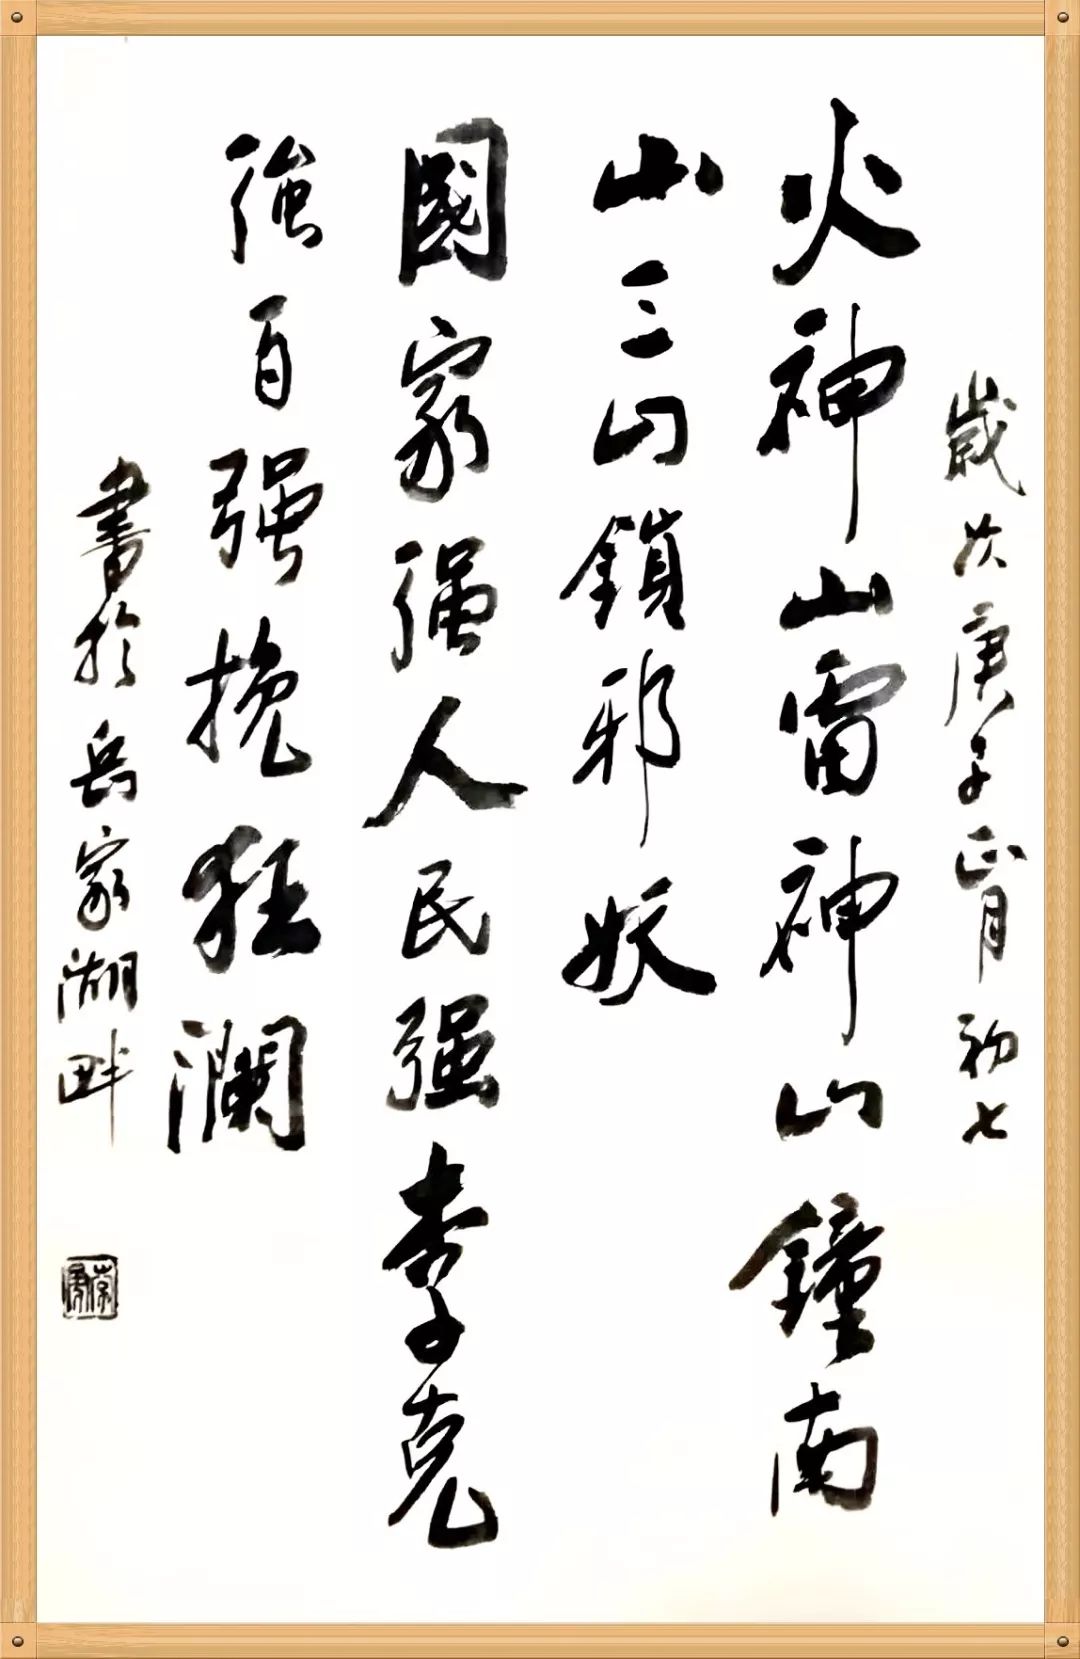 歲次庚子正月初七
火神山雷神山鐘南
山三山鎖邪妖
國家强人民强李克
強百强挽狂澜
書於岳家湖畔